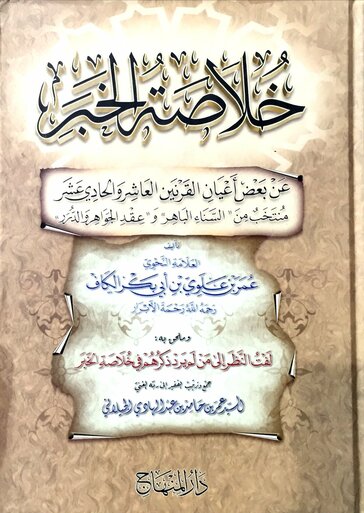 خُلَاصَةُ الخَبَر
عَنْ بَعْضِ أَعْيَانِ القَرْنَيْنِ العَاشِرِ وَالحَادِي عَشَر
مُنْتَخَبٌ مِنَ "السَّنَاءِ البَاهِرِ" وَ"عِقْدِ الجَوَاهِرِ وَالدُّرَرِ"
تأليف
العَلَّامَةِ النَّحْوِي
عُمَرَ بْنِ عَلَوِي بْنِ أَبِي بَكْرٍ الكَاف
رَحِمَهُ اللهُ رَحْمَةَ الأَبْرَار
وملحق به:
لَفْتُ النَّظَرِ إِلَى مَنْ لَمْ يَرِدْ ذِكْرُهُمْ فِي خُلَاصَةِ الخَبَر
جمع وترتيب الفقير إلى ربه الغني
السيد عمر بن حامد بن عبد الهادي الجيلاني
دَارُ المِنْهَاج